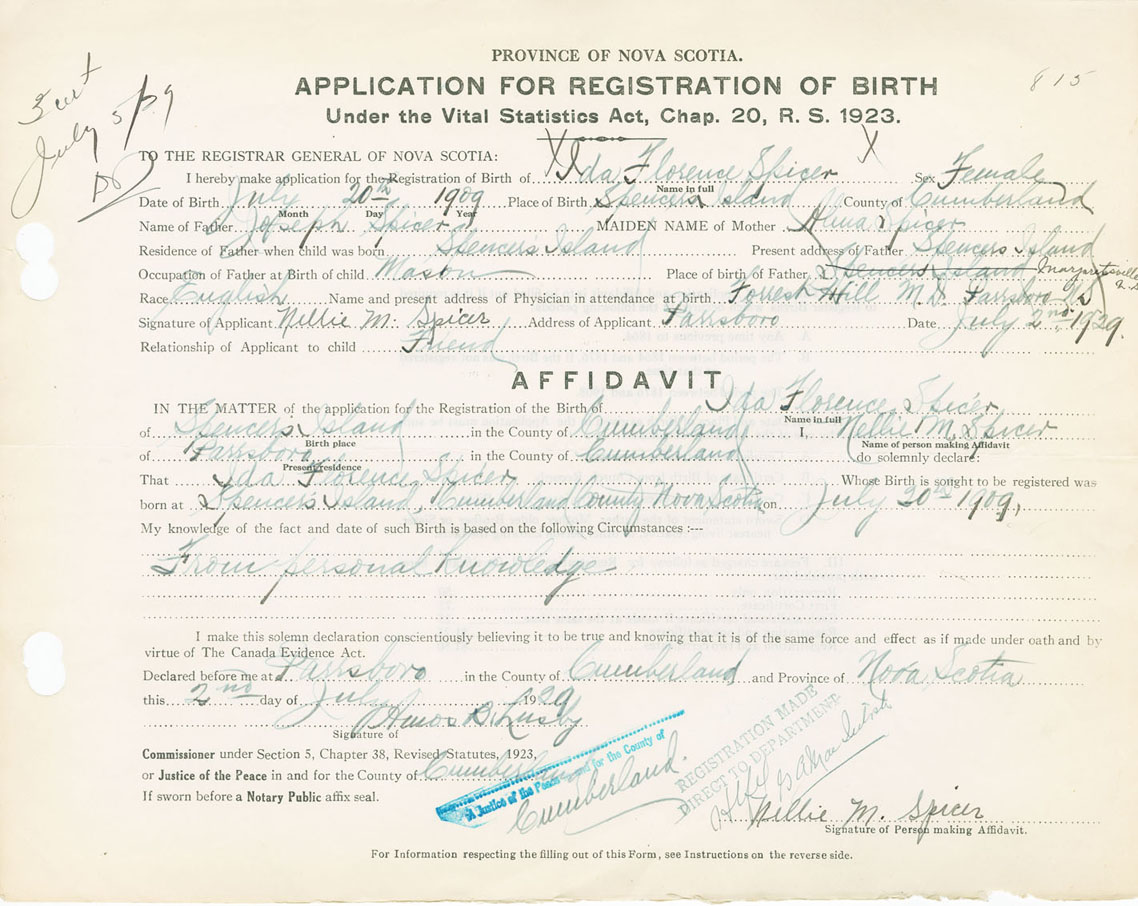 PROVINCE OF NOVA SCOTIA.
APPLICATION FOR REGISTRATION OF BIRTH
815
Under the Vital Statistics Act, Chap. 20, R. S. 1923.
July 5/29
TO THE REGISTRAR GENERAL OF NOVA SCOTIA:
I hereby make application for the Registration of Birth of X Ida Florence Spicer X Sex Female
Name in full
Date of Birth July 20th 1909 Place of Birth Spencers Island County of Cumberland
Month Day Year
Name of Father Joseph Spicer MAIDEN NAME of Mother Alma Spicer
Residence of Father when child was born Spencers Island Present address of Father Spencers Island
Occupation of Father at Birth of child Mason Place of birth of Father Spencers Island Margaretsville
Race English Name and present address of Physician in attendance at birth Forrest Hill M.D. Parrsboro N.S
Signature of Applicant Nellie M. Spicer Address of Applicant Parrsboro Date July 2nd 1929.
Relationship of Applicant to child Friend
AFFIDAVIT
IN THE MATTER of the application for the Registration of the Birth of Ida Florence Spicer
Name in full
of Spencers Island in the County of Cumberland I, Nellie M. Spicer
Birth place Name of person making Affidavit
of Parrsboro in the County of Cumberland do solemnly declare:
Present residence
That Ida Florence Spicer Whose Birth is sought to be registered was
born at Spencers Island, Cumberland County Nova Scotia on July 20th 1909,
My knowledge of the fact and date of such Birth is based on the following Circumstances :---
From personal Knowledge
I make this solemn declaration conscientiously believing it to be true and knowing that it is of the same force and effect as if made under oath and by
virtue of The Canada Evidence Act.
Declared before me at Parrsboro in the County of Cumberland and Province of Nova Scotia
this 2nd day of July 1929
Amos B. Lusby
Signature of
Commissioner under Section 5, Chapter 38, Revised Statutes, 1923,
or Justice of the Peace in and for the County of Cumberland
If sworn before a Notary Public affix seal.
A Justice of the Peace in and for the County of
Cumberland.
REGISTRATION MADE
DIRECT TO DEPARTMENT
Nellie M. Spicer
Signature of Person making Affidavit.
For Information respecting the filling out of this Form, see Instructions on the reverse side.